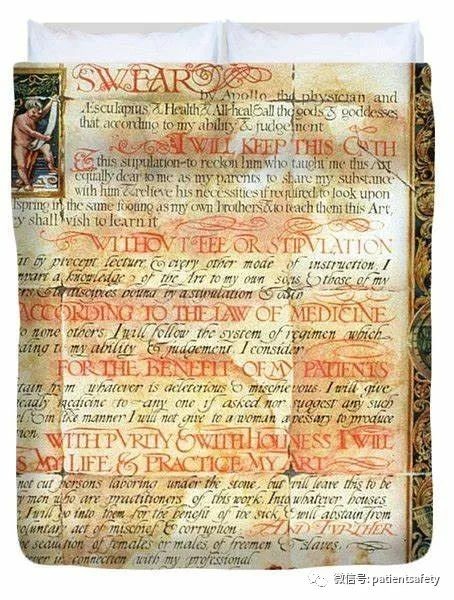 SWEAR
by Apollo the physician and
Æsculapius & Health & All-heal & all the gods & goddesses
that according to my ability & judgement
I WILL KEEP THIS OATH
& this stipulation-to reckon him who taught me this Art
equally dear to me as my parents to share my substance
with him & relieve his necessities if required to look upon
fspring in the same footing as my own brothers & to teach them this Art,
y shall wish to learn it
WITHOUT FEE OR STIPULATION
at by precept lecture & every other mode of instruction I
mpart a knowledge of the Art to my own sons & those of my
ers & to disciples bound by a stipulation & oath
ACCORDING TO THE LAW OF MEDICINE
o none others. I will follow the system of regimen which
ding to my ability & judgement. I consider
FOR THE BENEFIT OF MY PATIENTS
tain from whatever is deleterious & mischievous. I will give
eadly medicine to any one if asked nor suggest any such
el & in like manner I will not give to a woman a pessary to produce
ion.
WITH PURITY & WITH HOLINESS I WILL
S MY LIFE & PRACTICE MY ART
not cut persons laboring under the stone, but will leave this to be
y men who are practitioners of this work. Into whatever houses
I will go into them for the benefit of the sick & will abstain from
voluntary act of mischief & corruption. AND FURTHER
he seduction of females or males of freemen & slaves.
ever in connection with my professional
微信号: patientsafety